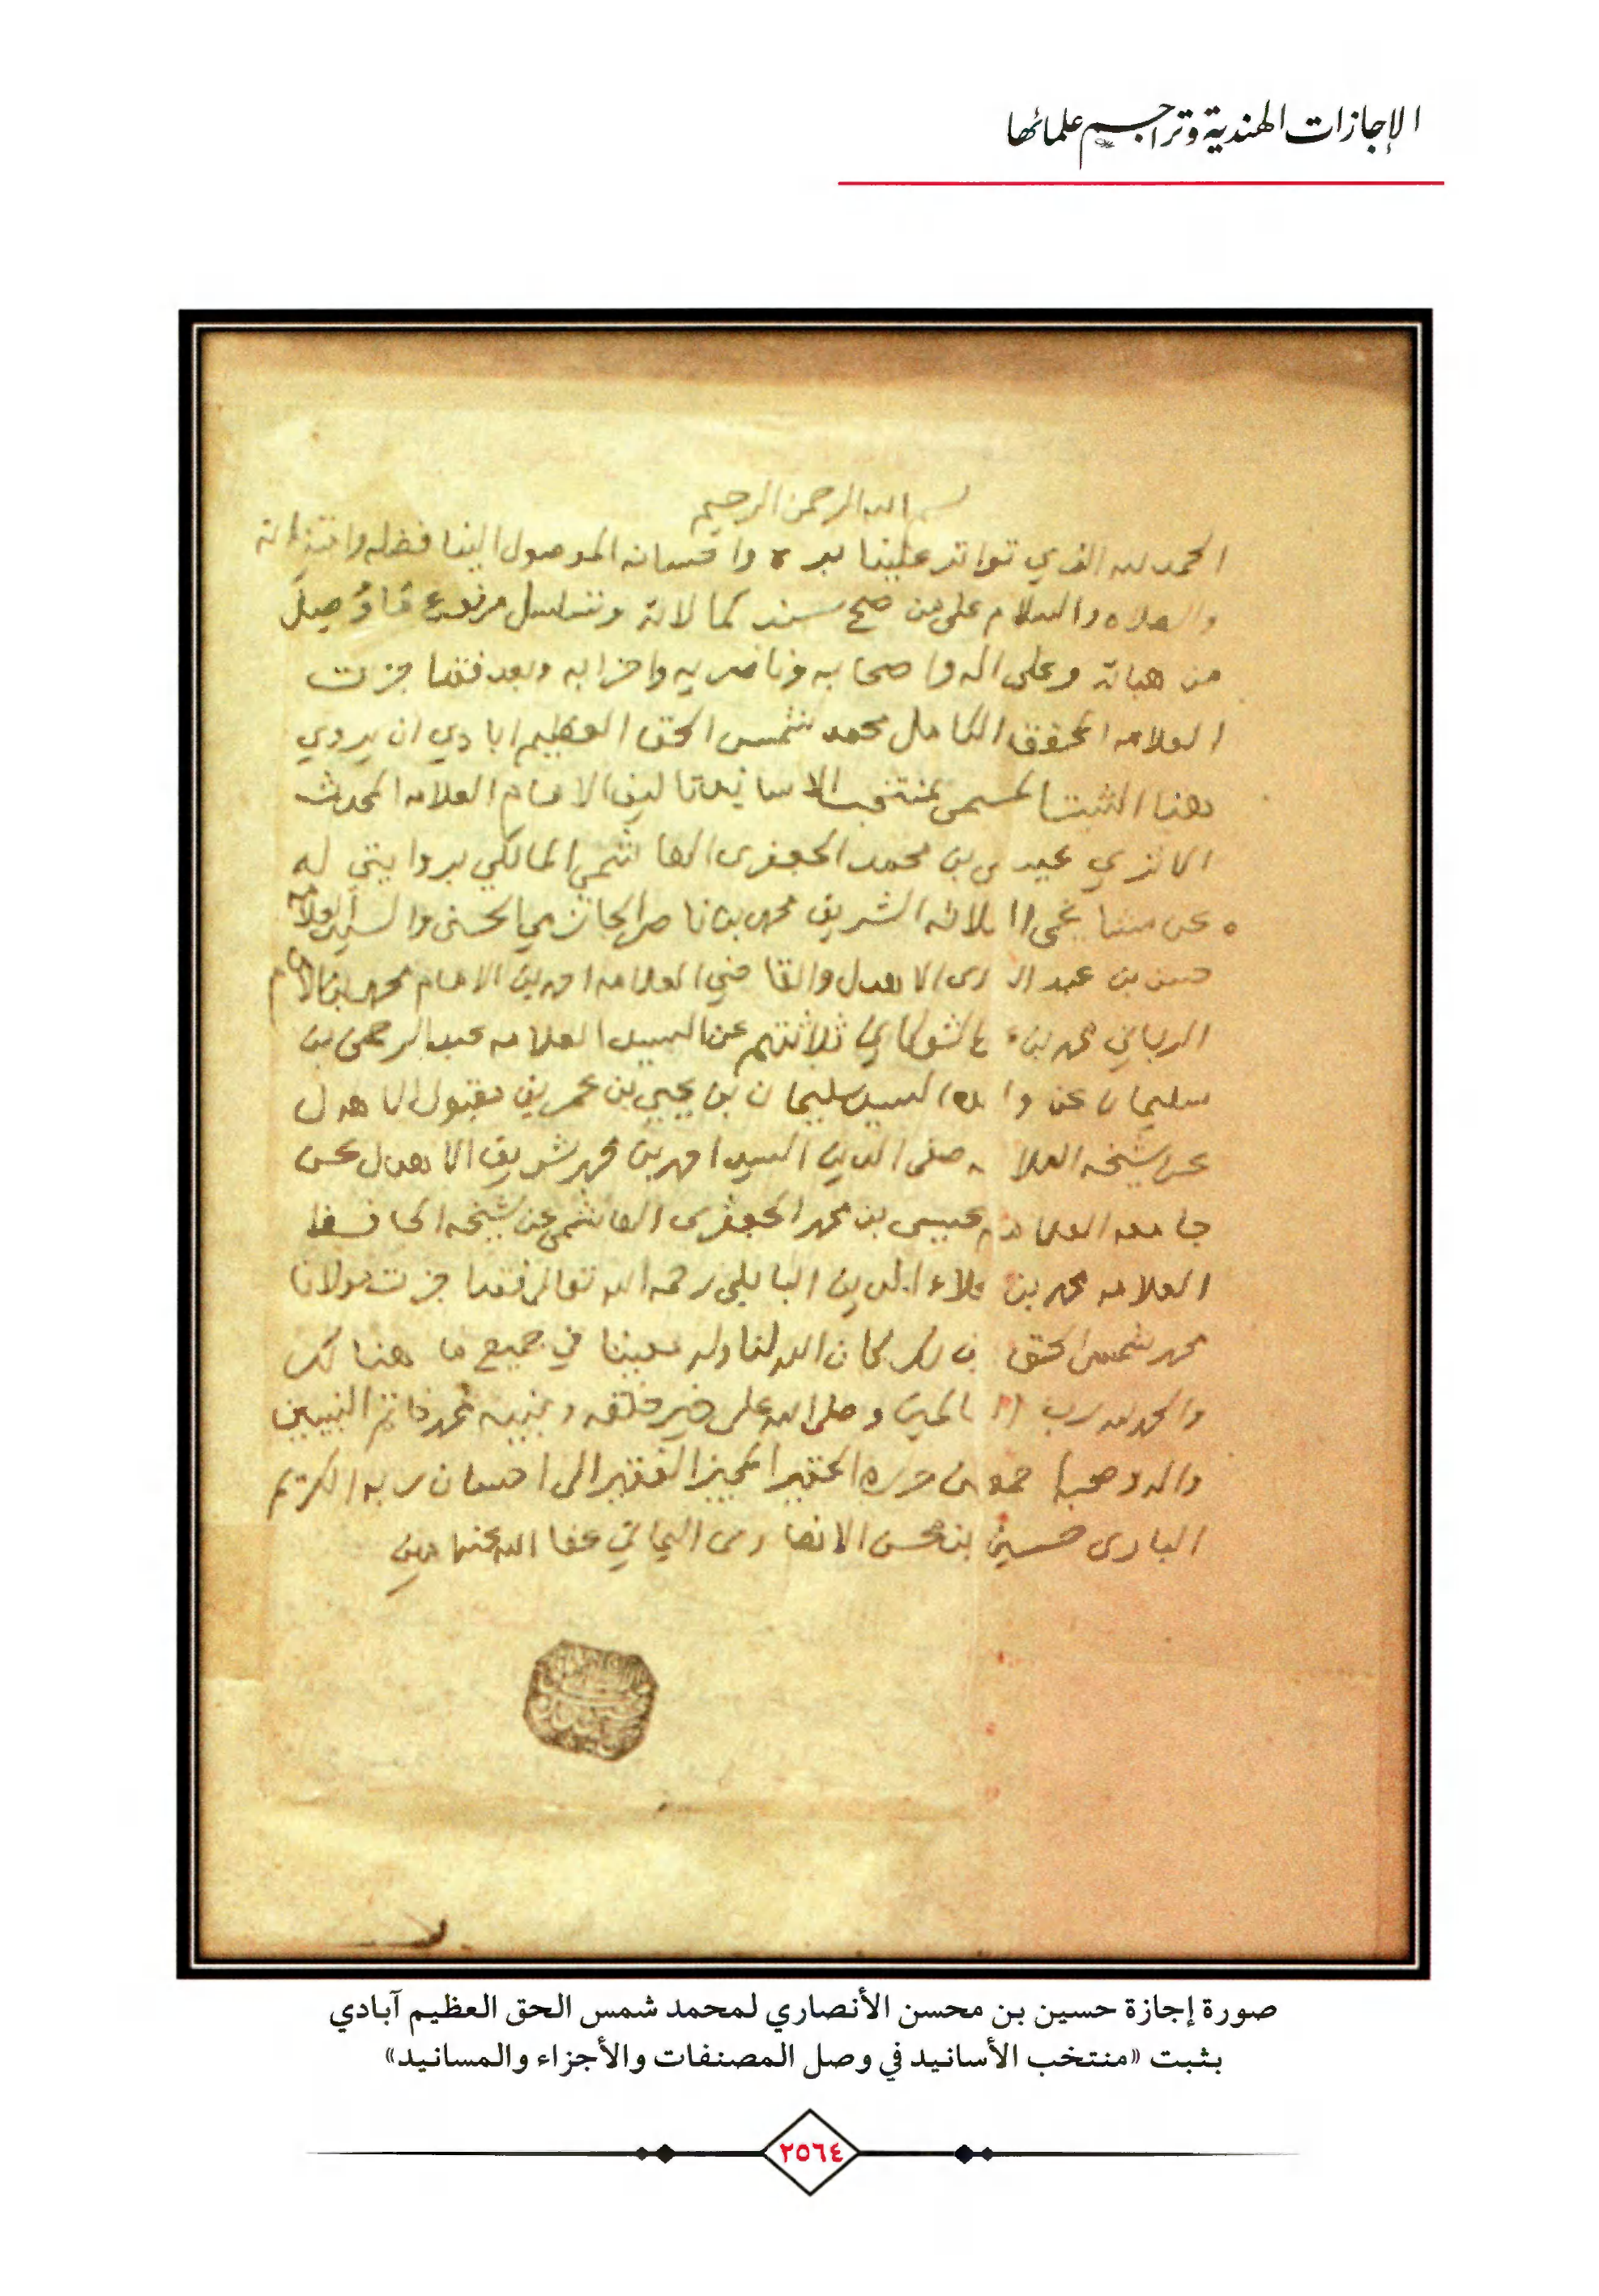 الإجازات الهندية وتراجم علمائها
بسم الله الرحمن الرحيم
الحمد لله الذي تواتر علينا بره واحسانه الموصول الينا فضله وامتنانه
والصلاه والسلام على من صح سند كمالاته وتسلسل مرفوع
من هباته وعلى اله واصحابه وناصريه واحزابه وبعد فقد اجزت
العلامه المحقق الكامل محمد شمس الحق العظيم ابادي ان يروي
هذا الثبت المسمى بمنتخب الاسانيد تاليف الامام العلامه المحدث
الاثري عيسى بن محمد الجعفرى الهاشمي المالكي بروايتي له
عن مشايخي الثلاثه الشريف محمد بن ناصر الحازمي الحسني والسيد العلامه
حسن بن عبد البارى الاهدل والقاضي العلامه احمد بن الامام محمد بن علي
الرباني محمد بن ع الشوكاني ثلاثتهم عن السيد العلامه عبد الرحمن بن
سليمان عن والده السيد سليمان بن يحيى بن عمر بن مقبول الاهدل
عن شيخه العلامه صفي الدين السيد احمد بن محمد شريف الاهدل عن
جامعه العلامه عيسى بن محمد الجعفرى الهاشمي عن شيخه الحافظ
العلامه محمد بن علاء الدين البابلي رحمه الله تعالى فقد اجزت مولانا
محمد شمس الحق بذلك كان الله لنا وله معينا في جميع ما هنالك
والحمد لله رب العالمين وصلى الله على خير خلقه ونبيه محمد خاتم النبيين
واله وصحبه اجمعين حرره الحقير المجيز الفقير الى احسان ربه الكريم
البارى حسين بن محسن الانصارى اليماني عفا الله عنهما امين
صورة إجازة حسين بن محسن الأنصاري لمحمد شمس الحق العظيم آبادي
بثبت «منتخب الأسانيد في وصل المصنفات والأجزاء والمسانيد»
٢٥٦٤